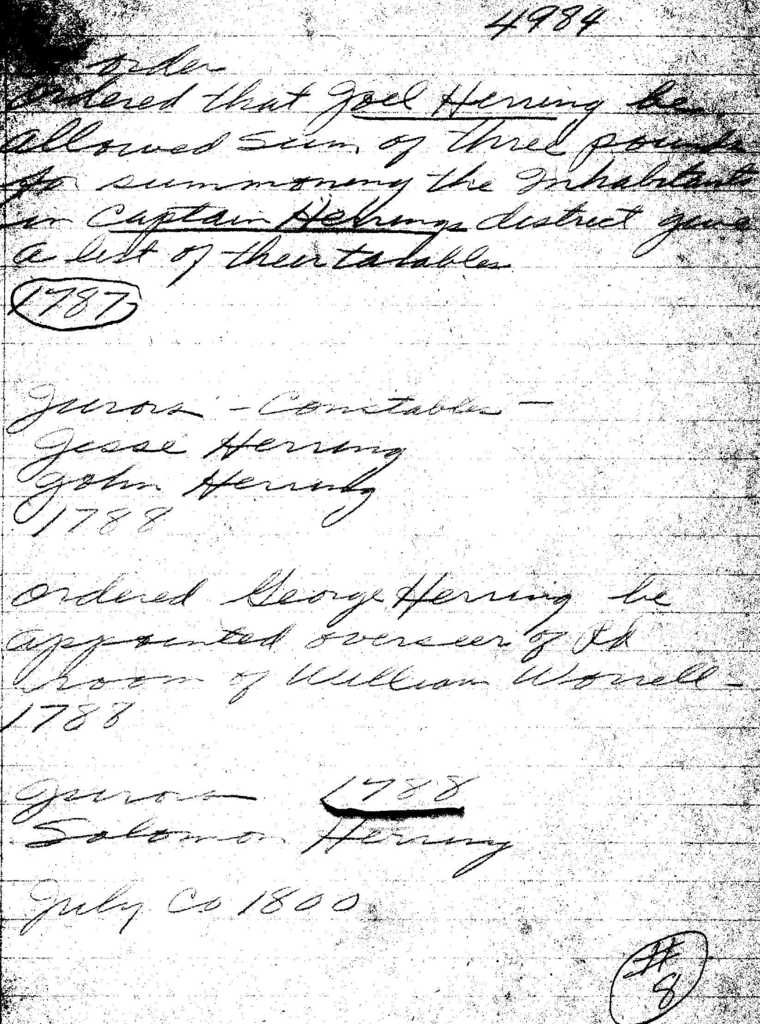 4984
order
ordered that Joel Herring be
allowed sum of three pounds
for summoning the Inhabitants
in Captain Herrings district give
a list of their taxables
1787
Jurors - Constables -
Jesse Herring
John Herring
1788
ordered George Herring be
appointed overseer of Rd
room of William Worrell -
1788
Jurors 1788
Solomon Herring
July Co 1800
#
8